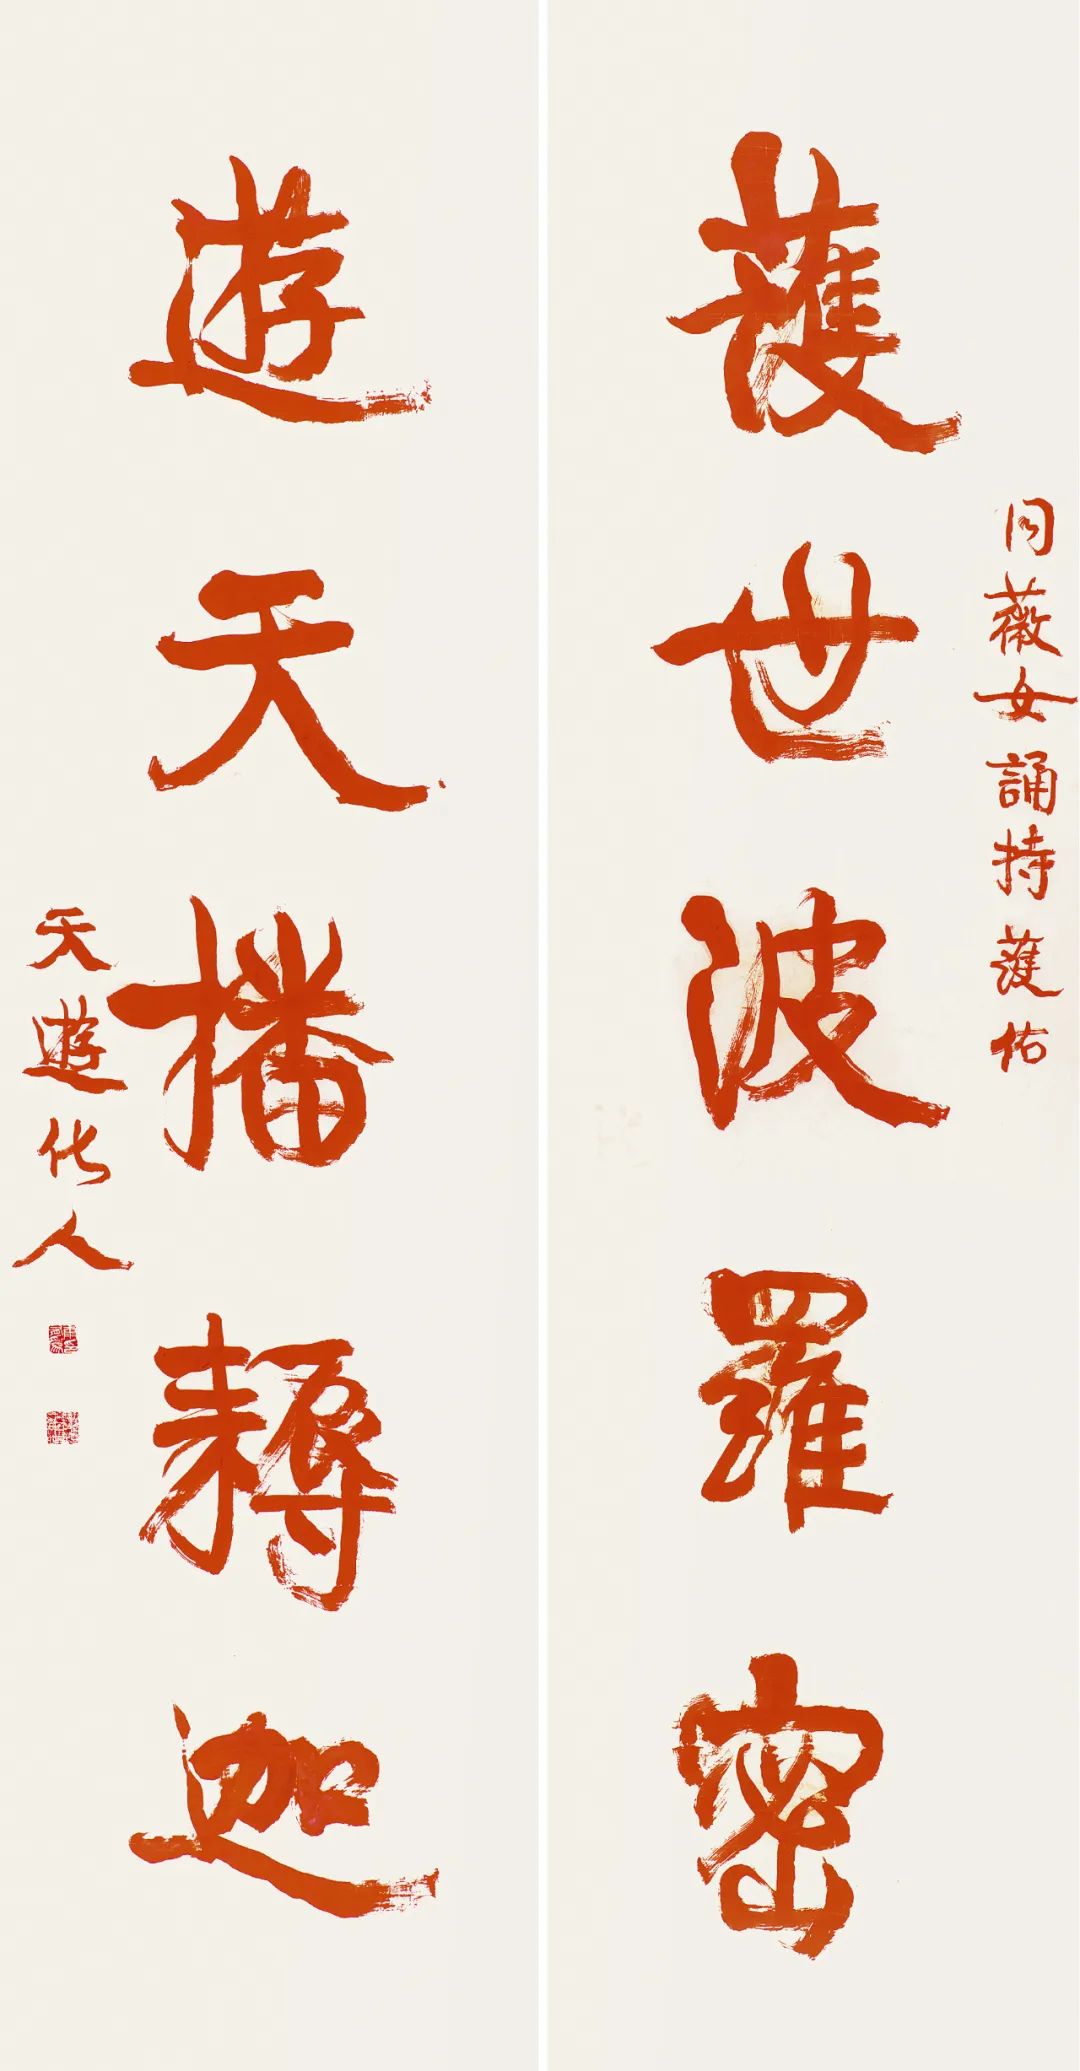 同薇女誦持護佑
護世波羅密
遊天播耨迦
天遊化人